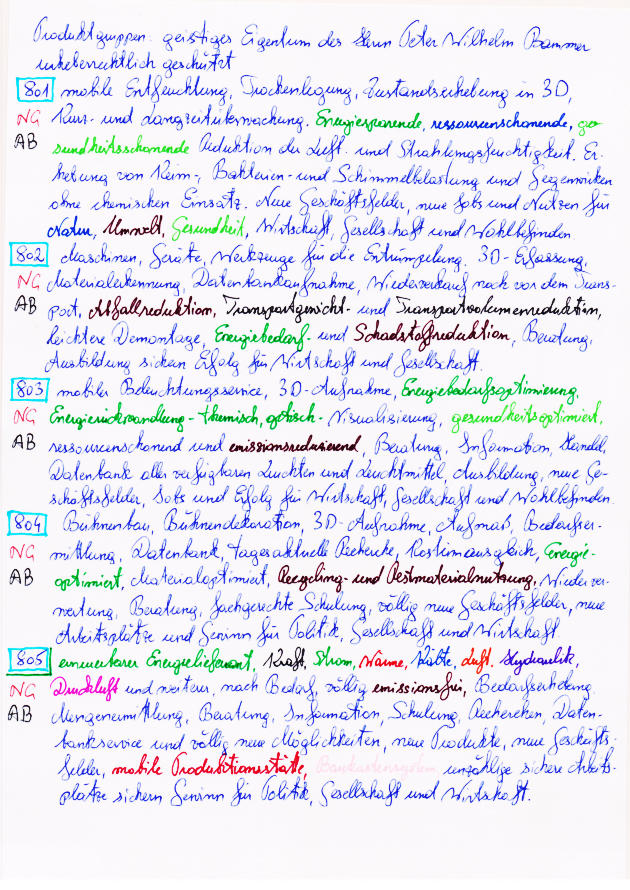 Produktgruppen: geistiges Eigentum des Herrn Peter Wilhelm Bammer
urheberrechtlich geschützt
801 mobile Entfeuchtung, Trockenlegung, Zustandserhebung in 3D,
NG Kurz- und Langzeitüberwachung. Energiesparende, ressourcenschonende, ge-
AB sundheitsschonende Reduktion der Luft- und Strahlungsfeuchtigkeit. Er-
hebung von Keim-, Bakterien- und Schimmelbelastung und Gegenwirken
ohne chemischen Einsatz. Neue Geschäftsfelder, neue Jobs und Nutzen für
Natur, Umwelt, Gesundheit, Wirtschaft, Gesellschaft und Wohlbefinden
802 Maschinen, Geräte, Werkzeuge für die Entrümpelung. 3D-Erfassung,
NG Materialerkennung, Datenbankaufnahme, Wiederverkauf noch vor dem Trans-
AB port, Abfallreduktion, Transportgewicht- und Transportvolumenreduktion,
leichtere Demontage, Energiebedarf- und Schadstoffreduktion, Beratung,
Ausbildung sichern Erfolg für Wirtschaft und Gesellschaft.
803 mobiler Beleuchtungsservice, 3D-Aufnahme, Energiebedarfsoptimierung,
NG Energierückwandlung - thermisch, optisch - Visualisierung, gesundheitsoptimiert,
AB ressourcenschonend und emissionsreduzierend, Beratung, Information, Handel,
Datenbank aller verfügbaren Leuchten und Leuchtmittel, Ausbildung, neue Ge-
schäftsfelder, Jobs und Erfolg für Wirtschaft, Gesellschaft und Wohlbefinden.
804 Bühnenbau, Bühnendekoration, 3D-Aufnahme, Aufmaß, Bedarfser-
NG mittlung, Datenbank, tagesaktuelle Recherche, Kostenausgleich, Energie-
AB optimiert, Materialoptimiert, Recycling- und Restmaterialnutzung, Wiederver-
wertung, Beratung, fachgerechte Schulung, völlig neue Geschäftsfelder, neue
Arbeitsplätze und Gewinn für Politik, Gesellschaft und Wirtschaft
805 erneuerbarer Energielieferant, Kraft, Strom, Wärme, Kälte, Luft, Hydraulik,
NG Druckluft und weitere, nach Bedarf, völlig emissionsfrei, Bedarfserhebung
AB Mengenermittlung, Beratung, Information, Schulung, Recherchen, Daten-
bankservice und völlig neue Möglichkeiten, neue Produkte, neue Geschäfts-
felder, mobile Produktionsstätte, Baukastensystem unzählige sichere Arbeits-
plätze sichern Gewinn für Politik, Gesellschaft und Wirtschaft.